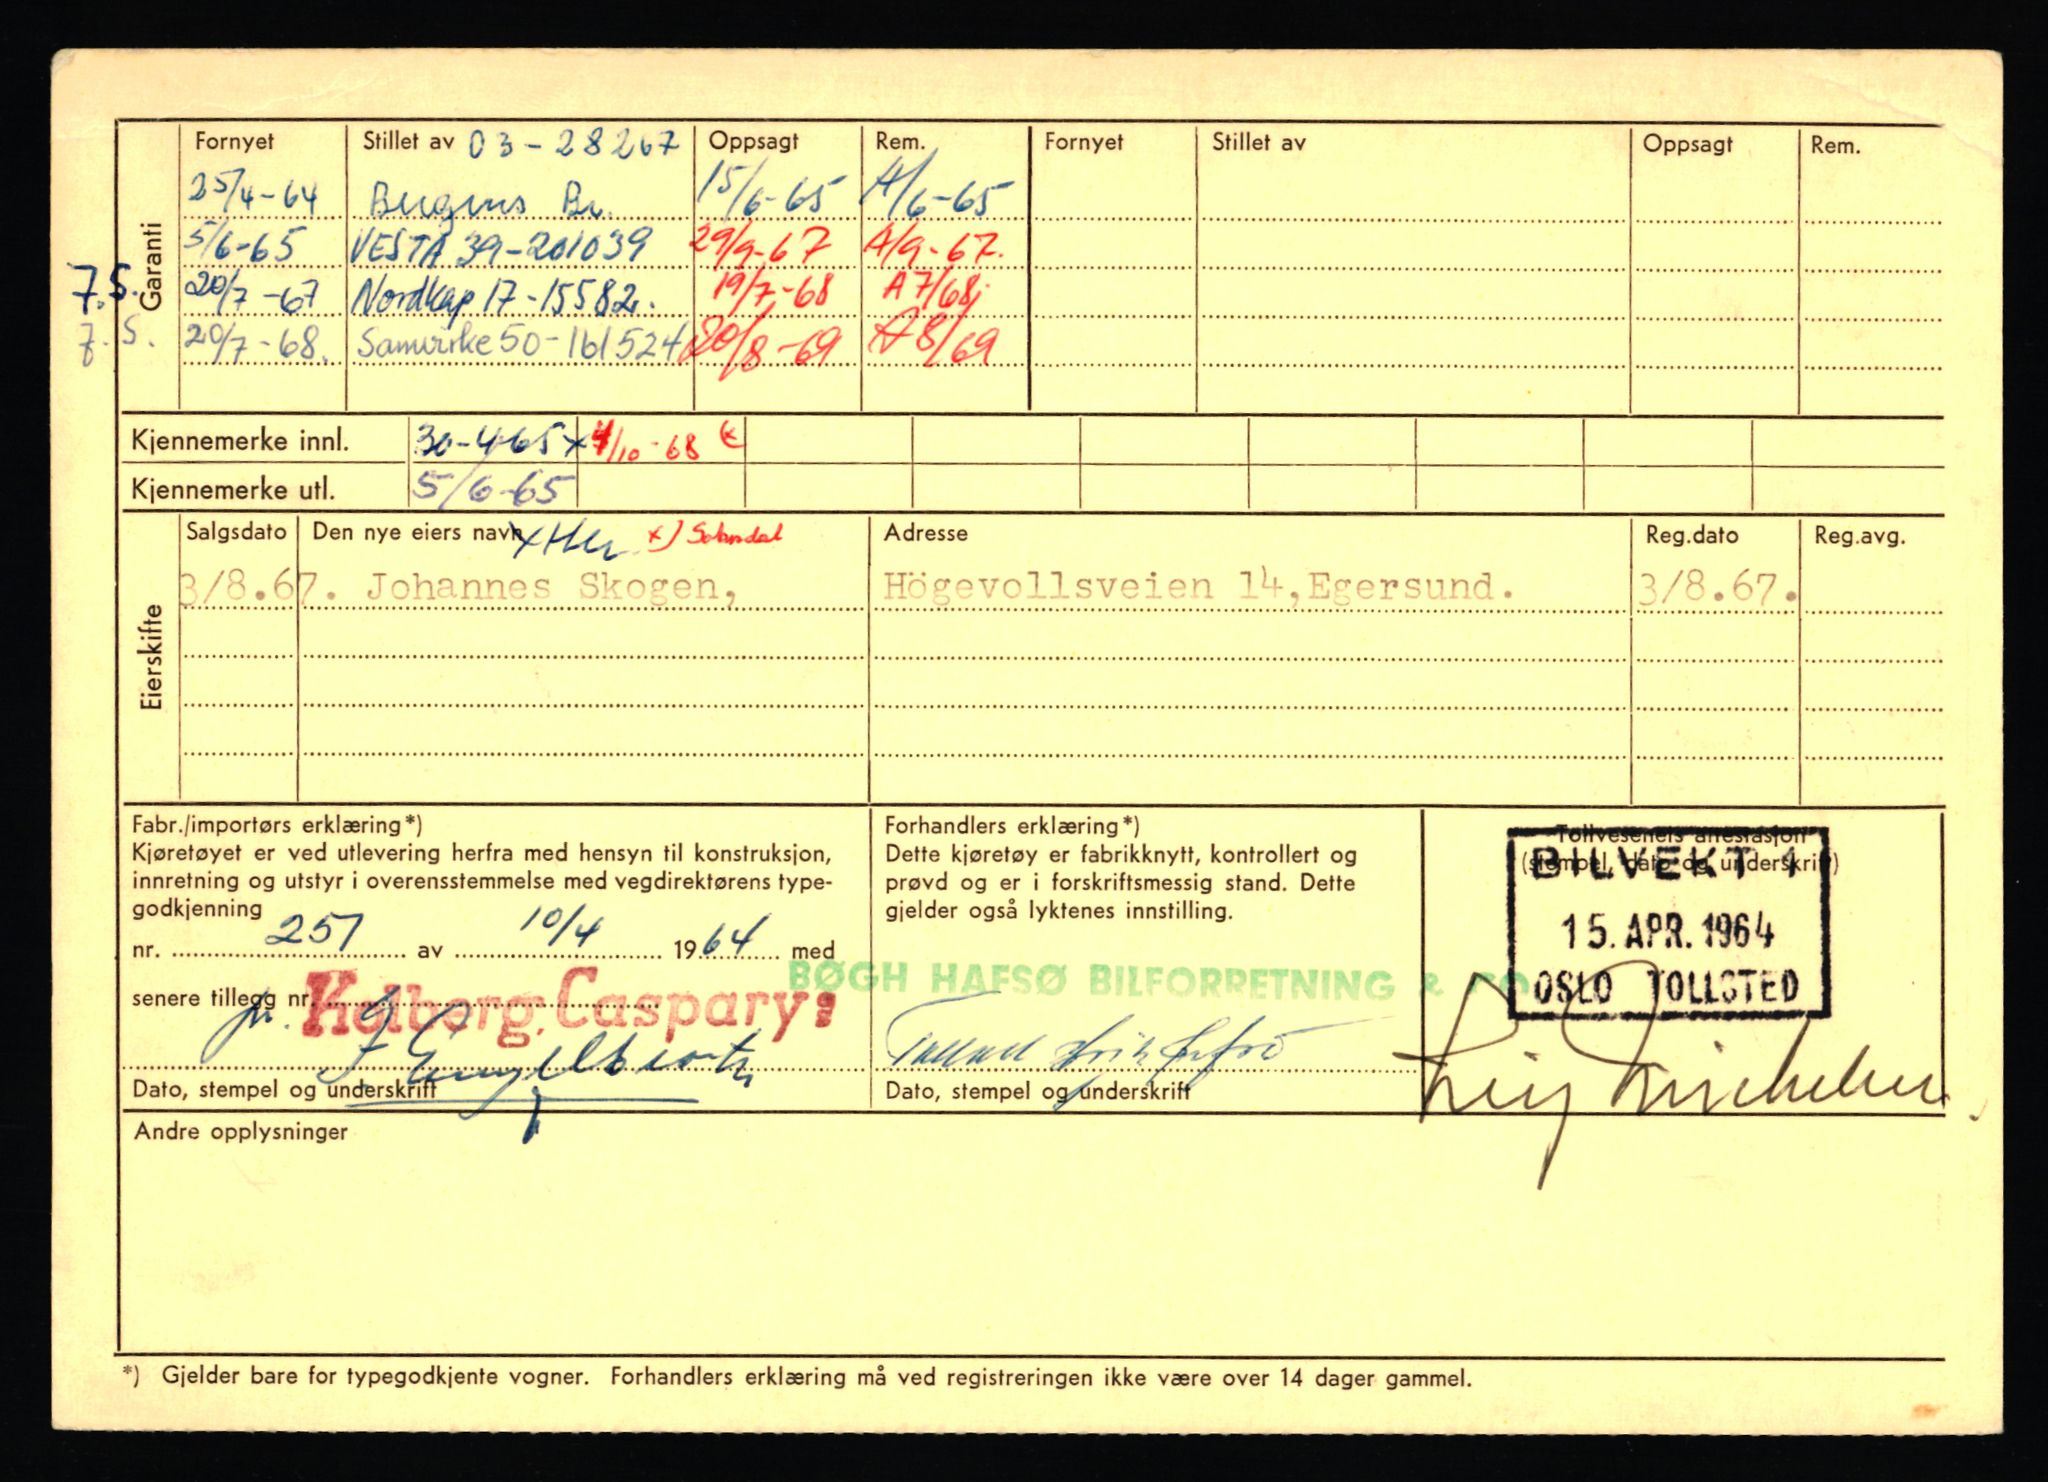 Fornyet Stillet av 03-28267 Oppsagt Rem. Fornyet Stillet av Oppsagt Rem.
Garanti
25/4-64 Bergens Br. 15/6-65 A/6-65
5/6-65 VESTA 39-201039 29/9-67 A/9-67.
7.S. 20/7-67 Nordkap 17-15582. 19/7-68 A 7/68.
7.S. 20/7-68. Samvirke 50-161524 20/8-69 A 8/69
Kjennemerke innl. 30-4-65 x 4/10-68 (x
Kjennemerke utl. 5/6-65
Eierskifte
Salgsdato Den nye eiers navn x) Sokndal Adresse Reg.dato Reg.avg.
3/8.67. Johannes Skogen, Högevollsveien 14,Egersund. 3/8.67.
Fabr./importørs erklæring*)
Kjøretøyet er ved utlevering herfra med hensyn til konstruksjon,
innretning og utstyr i overensstemmelse med vegdirektørens type-
godkjenning
nr. 251 av 10/4 1964 med
senere tillegg nr.
Kolberg, Caspary
Dato, stempel og underskrift
Forhandlers erklæring*)
Dette kjøretøy er fabrikknytt, kontrollert og
prøvd og er i forskriftsmessig stand. Dette
gjelder også lyktenes innstilling.
BØGH HAFSØ BILFORRETNING & CO
Dato, stempel og underskrift
Tollvesenets attestasjon
(stempel, dato og underskrift)
BILVEKT 1
15. APR. 1964
OSLO TOLLSTED
Andre opplysninger
*) Gjelder bare for typegodkjente vogner. Forhandlers erklæring må ved registreringen ikke være over 14 dager gammel.